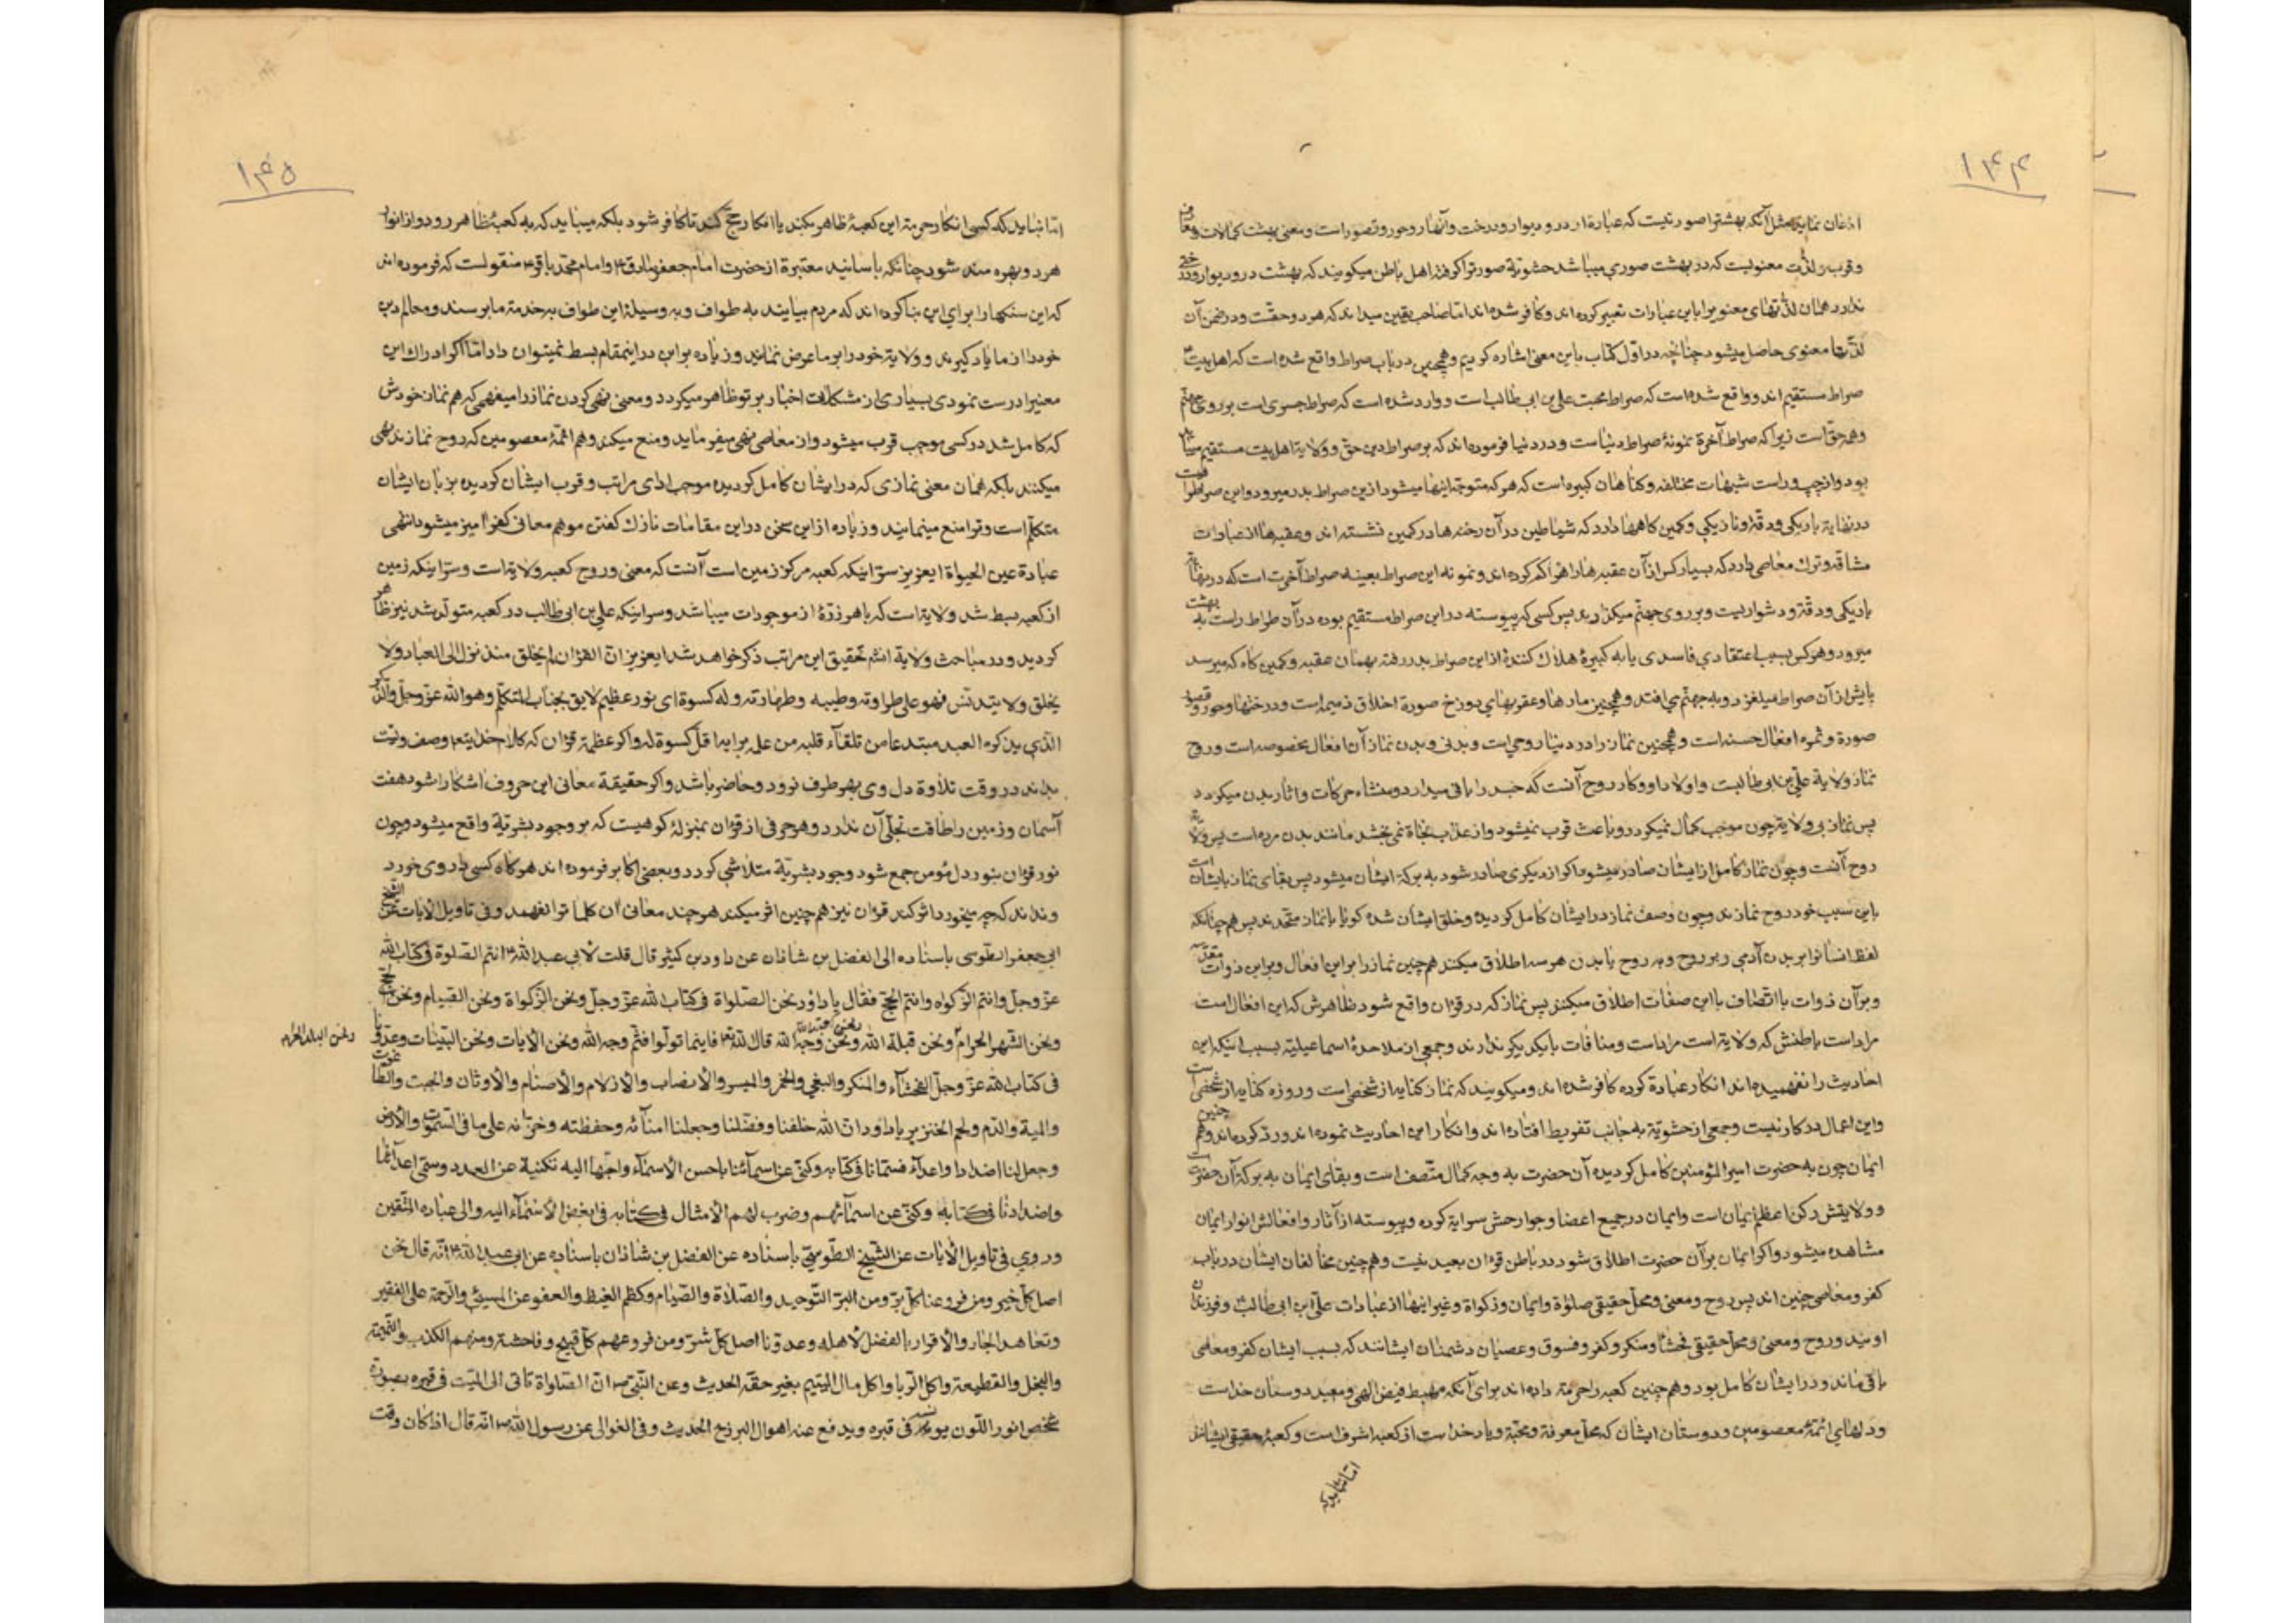 ۱۴۴
اذعان نماید مثل آنکه بهشترا صورتیست که عبارة از در و دیوار و درخت و انهار و حور و قصور است و معنی بهشت کمالات و معارف
و قرب و لذت معنویست که در بهشت صوری میباشد حشویة صورترا گرفته اهل باطن میگویند که بهشت در و دیوار و درختی
ندارد همان لذتهای معنویرا باین عبارات تعبیر کرده اند و کافر شده اند اما صاحب یقین میداند که هر دو حقست و در ضمن آن
لذتها معنوی حاصل میشود چنانچه در اول کتاب باین معنی اشاره کردیم و همچنین در باب صراط واقع شده است که اهل بیت
صراط مستقیم اند و واقع شده است که صراط محبت علی بن ابی طالب است و وارد شده است که صراط جسری است بر روی جهنم
و همه حق است زیرا که صراط آخرة نمونهٔ صراط دنیاست و در دنیا فرموده اند که بر صراط دین حق و ولایة اهل بیت مستقیم میباید
بود و از چپ و راست شبهات مختلفه و گناهان کبیره است که هر که متوجه اینها میشود ازین صراط بدر میرود و این صراط
در نهایة باریکی و دقة و نازیکی و کمین کاهها دارد که شیاطین در آن رخنه ها در کمین نشسته اند و عقبه ها از عبادات
مشاقه و ترک معاصی دارد که بسیار کس از آن عقبه ها راه گم کرده اند و نمونه این صراط بعینه صراط آخرت است که در نهایة
باریکی و دقة و دشواریست و بر روی جهنم میگذارند پس کسی که پیوسته در این صراط مستقیم بوده در آن صراط راست به بهشت
میرود و هر کس بسبب اعتقادی فاسدی یا به کبیرهٔ هلاک کنندهٔ از این صراط بدر رفته بهمان عقبه و کمین کاه که میرسد
پایش از آن صراط میلغزد و به جهنم می افتد و همچنین مارها و عقربهای دوزخ صورة اخلاق ذمیمه است و درختها و حور و قصور
صورة و ثمره افعال حسنه است و همچنین نماز را در دنیا روحی است و بدنی و بدن نماز آن افعال مخصوصه است و روح
نماز ولایة علی بن ابی طالبست و اولاد او و کار روح آنست که جسد را باقی میدارد و منشاء حرکات و اثار بدن میگردد
پس نماز بی ولایة چون موجب کمال نمیگردد و باعث قرب نمیشود و از عذاب نجاة نمی بخشد مانند بدن مرده است پس ولایة
روح آنست و چون نماز کامل از ایشان صادر میشود و اگر از دیگری صادر شود به برکة ایشان میشود پس بقای نماز بایشان است
باین سبب خود روح نمازند و چون وصف نماز در ایشان کامل گردیده و خلق ایشان شده گویا با نماز متحدند پس هم چنانکه
لفظ انسانرا بر بدن آدمی و بر روح و بر روح با بدن هر سه اطلاق میکنند هم چنین نماز را بر این افعال و بر این ذوات مقدسه
و بر آن ذوات با اتصاف باین صفات اطلاق میکنند پس نماز که در قران واقع شود ظاهرش که این افعال است
مراد است باطنش که ولایة است مراد است و منافات با یکدیگر ندارند و جمعی از ملاحدهٔ اسماعیلیه بسبب اینکه این
احادیث را نفهمیده اند انکار عبادة کرده کافر شده اند و میگویند که نماز کنایه از شخصی است و روزه کنایه از شخصی است
و این اعمال در کار نیست و جمعی از حشویة به جانب تفریط افتاده اند و انکار این احادیث نموده اند و رد کرده اند و هم چنین
ایمان چون به حضرت امیر المؤمنین کامل گردیده آن حضرت به وجه کمال متصف است و بقای ایمان به برکة آن حضرت است
و ولایتش رکن اعظم ایمان است و ایمان در جمیع اعضا و جوارحش سرایة کرده و پیوسته از آثار و افعالش انوار ایمان
مشاهده میشود و اگر ایمان بر آن حضرت اطلاق شود در باطن قران بعید نیست و هم چنین مخالفان ایشان در باب
کفر و معاصی چنین اند پس روح و معنی و محل حقیقی صلوة و ایمان و زکواة و غیر اینها از عبادات علی ابن ابی طالب و فرزندان
اویند و روح و معنی و محل حقیقی فحشا و منکر و کفر و فسوق و عصیان دشمنان ایشانند که بسبب ایشان کفر و معاصی
باقی ماند و در ایشان کامل بود و هم چنین کعبه را حرمة داده اند برای آنکه مهبط فیض الهی و معبد دوستان خداست
و دلهای ائمهٔ معصومین و دوستان ایشان که محل معرفة و محبة و یاد خداست از کعبه اشرف است و کعبهٔ حقیقی ایشانند
اما نباید که
۱۴۵
اما نباید که کسی انکار حرمة این کعبهٔ ظاهر بکند یا انکار حج کند تا کافر شود بلکه میباید که به کعبهٔ ظاهر رود و از انوار
هر دو بهره مند شود چنانکه باسانید معتبرة از حضرت امام جعفر صادق و امام محمد باقر منقولست که فرموده اند
که این سنکها را برای این بنا کرده اند که مردم بیایند به طواف و به وسیلهٔ این طواف به خدمة ما برسند و معالم دین
خود را از ما یاد گیرند و ولایة خود را بر ما عرض نمایند و زیاده بر این در اینمقام بسط نمیتوان داد اما اگر ادراک این
معنیرا درست نمودی بسیاری از مشکلات اخبار بر تو ظاهر میگردد و معنی نهی کردن نماز را میفهمی که هم نماز خودش
که کامل شد در کسی موجب قرب میشود و از معاصی نهی میفرماید و منع میکند و هم ائمهٔ معصومین که روح نمازند نهی
میکنند بلکه همان معنی نمازی که در ایشان کامل گردیده موجب ادای مراتب و قرب ایشان گردیده بزبان ایشان
متکلم است و ترا منع مینماید و زیاده از این سخن در این مقامات نازک گفتن موهم معانی کفر آمیز میشود انتهی
عبادة عین الحیواة ایعزیز سر اینکه کعبه مرکز زمین است آنست که معنی و روح کعبه ولایة است و سر اینکه زمین
از کعبه بسط شد ولایة است که با هر ذرهٔ از موجودات میباشد و سر اینکه علی بن ابی طالب در کعبه متولد شد نیز ظاهر
گردید و در مباحث ولایة انشم تحقیق این مراتب ذکر خواهد شد ایعزیز ان القران لم یخلق منذ نزل الی العباد ولا
یخلق ولا یتدنس فهو علی طراوته وطیبه وطهارته وله کسوة ای نور عظیم لایق بجناب المتکلم وهو الله عز وجل والذکر
الذی یذکره العبد مبتدعا من تلقاء قلبه من علم برایه اقل کسوة له و اگر عظمة قران که کلام خدایتع وصف اوست
بداند در وقت تلاوة دل وی بهر طرف نرود و حاضر باشد و اگر حقیقة معانی این حروف اشکارا شود هفت
آسمان و زمین را طاقت تجلی آن ندارد و هر حرفی از قران بمنزلهٔ کوهیست که بر وجود بشریة واقع میشود و چون
نور قران بنور دل مؤمن جمع شود وجود بشریة متلاشی گردد و بعضی اکابر فرموده اند هر کاه کسی داروی خورد
و نداند که چه میخورد اثر کند قران نیز هم چنین اثر میکند هر چند معانی ان کلمات را نفهمد و فی تاویل الایات عن الشیخ
ابی جعفر الطوسی باسناده الی الفضل بن شاذان عن داود بن کثیر قال قلت لأبی عبد الله انتم الصلوة فی کتاب الله
عز وجل وانتم الزکواة وانتم الحج فقال یا داود نحن الصلواة فی کتاب الله عز وجل ونحن الزکواة ونحن الصیام ونحن الحج
ونحن الشهر الحرام ونحن البلد الحرام ونحن کعبة الله ونحن قبلة الله ونحن وجه الله قال الله تع فاینما تولوا فثم وجه الله ونحن الأیات ونحن البینات وعدونا
فی کتاب الله عز وجل الفحشاء والمنکر والبغی والخمر والمیسر والأنصاب والأزلام والأصنام والأوثان والجبت والطاغوت
والمیة والدم ولحم الخنزیر یا داود ان الله خلقنا وفضلنا وجعلنا امنائه وحفظته وخزانه علی ما فی السموات والأرض
وجعل لنا اضدادا واعداء فسمانا فی کتابه وکنی عن اسمائنا باحسن الأسماء واحبها الیه تکنیة عن العدد وسمی اعدائنا
واضدادنا فی کتابه وکنی عن اسمائهم وضرب لهم الأمثال فی کتابه فی ابغض الأسماء الیه والی عباده المتقین
وروی فی تاویل الأیات عن الشیخ الطوسی باسناده عن الفضل بن شاذان باسناده عن ابی عبد الله انه قال نحن
اصل کل خیر ومن فروعنا کل بر ومن البر التوحید والصلاة والصیام وکظم الغیظ والعفو عن المسیئ والرحمة علی الفقیر
وتعاهد الجار والأقرار بالفضل لأهله وعدونا اصل کل شر ومن فروعهم کل قبیح وفاحشة ومنهم الکذب والنمیمة
والبخل والقطیعة واکل الربا واکل مال الیتیم بغیر حقه الحدیث وعن النبی ان الصلواة تأتی الی المیت فی قبره بصورة
شخص انور اللون یونسه فی قبره ویدفع عنه اهوال البرزخ الحدیث وفی الغوالی عن رسول الله انه قال اذا کان وقت